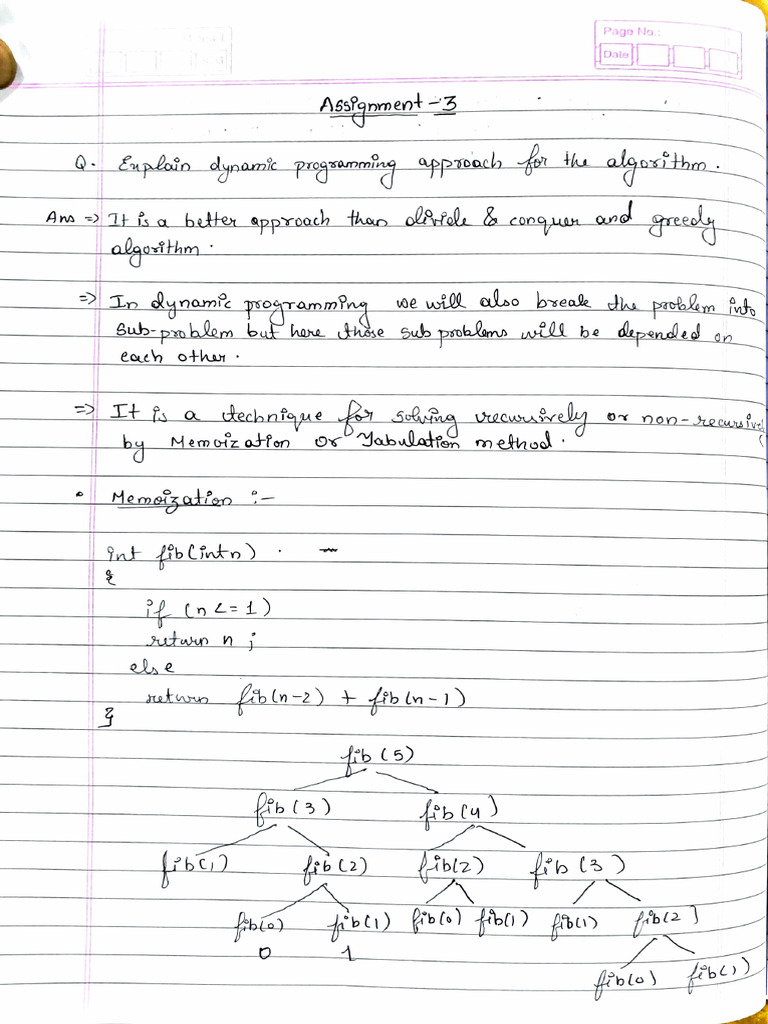 Page No.:
Date
Assignment - 3
Q. Explain dynamic programming approach for the algorithm.
Ans => It is a better approach than divide & conquer and greedy
algorithm.
=> In dynamic programming we will also break the problem into
sub-problem but here those sub problems will be depended on
each other.
=> It is a technique for solving recursively or non-recursively
by Memoization or Tabulation method.
• Memoization :-
int fib(int n)
{
if (n <= 1)
return n ;
else
return fib(n-2) + fib(n-1)
}
fib(5)
fib(3) fib(4)
fib(1) fib(2) fib(2) fib(3)
fib(0) fib(1) fib(0) fib(1) fib(1) fib(2)
0 1
fib(0) fib(1)